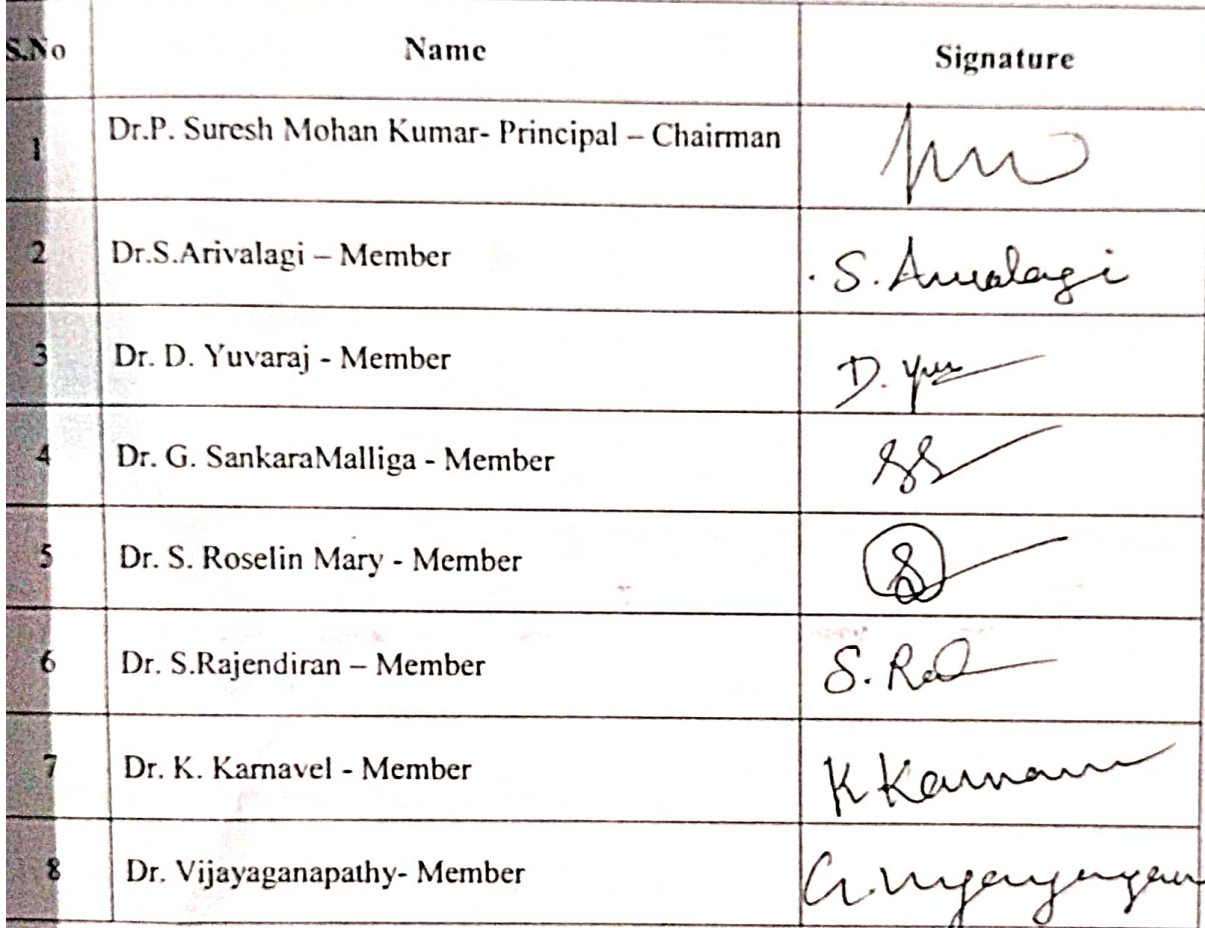 S.No Name Signature
1 Dr.P. Suresh Mohan Kumar- Principal – Chairman
2 Dr.S.Arivalagi – Member S. Arivalagi
3 Dr. D. Yuvaraj - Member D. Yuv
4 Dr. G. SankaraMalliga - Member
5 Dr. S. Roselin Mary - Member
6 Dr. S.Rajendiran – Member S.
7 Dr. K. Karnavel - Member K
8 Dr. Vijayaganapathy- Member